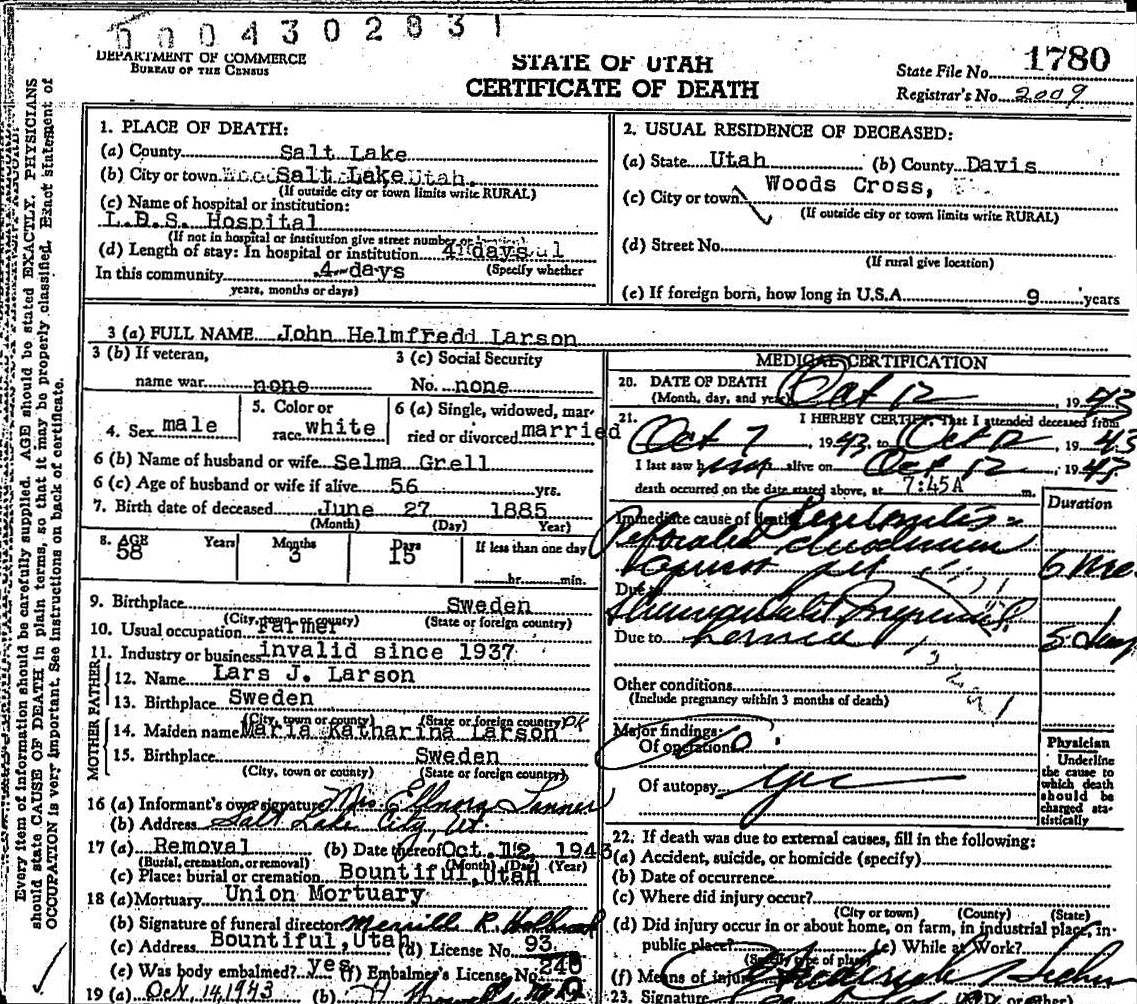 0004302831
DEPARTMENT OF COMMERCE
BUREAU OF THE CENSUS
STATE OF UTAH
CERTIFICATE OF DEATH
State File No. 1780
Registrar's No. 2009
Every item of information should be carefully supplied. AGE should be stated EXACTLY. PHYSICIANS
should state CAUSE OF DEATH in plain terms, so that it may be properly classified. Exact statement of
OCCUPATION is very important. See instructions on back of certificate.
1. PLACE OF DEATH:
(a) County Salt Lake
(b) City or town Salt Lake Utah.
(If outside city or town limits write RURAL)
(c) Name of hospital or institution:
L.D.S. Hospital
(If not in hospital or institution give street number or
(d) Length of stay: In hospital or institution 4 days
In this community 4 days (Specify whether
years, months or days)
2. USUAL RESIDENCE OF DECEASED:
(a) State Utah (b) County Davis
(c) City or town Woods Cross,
(If outside city or town limits write RURAL)
(d) Street No.
(If rural give location)
(e) If foreign born, how long in U.S.A. 9 years
3 (a) FULL NAME John Helmfredd Larson
3 (b) If veteran, 3 (c) Social Security
name war none No. none
4. Sex male 5. Color or race white 6 (a) Single, widowed, mar-
ried or divorced married
6 (b) Name of husband or wife Selma Grell
6 (c) Age of husband or wife if alive 56 yrs.
7. Birth date of deceased June 27 1885
(Month) (Day) Year)
8. AGE Years Months Days If less than one day
58 3 15
hr. min.
9. Birthplace Sweden
(City, town or county) (State or foreign country)
10. Usual occupation Farmer
11. Industry or business invalid since 1937
FATHER
12. Name Lars J. Larson
13. Birthplace Sweden
(City, town or county) (State or foreign country)
MOTHER
14. Maiden name Maria Katharina Larson OK
15. Birthplace Sweden
(City, town or county) (State or foreign country)
16 (a) Informant's own signature Mrs Ellnora Tanner
(b) Address Salt Lake City, Ut.
17 (a) Removal (b) Date thereof Oct. 12 1943
(Burial, cremation, or removal) (Month) (Day) (Year)
(c) Place: burial or cremation Bountiful, Utah
18 (a) Mortuary Union Mortuary
(b) Signature of funeral director Merrill R. Holbrook
(c) Address Bountiful, Utah (d) License No. 93
(e) Was body embalmed? yes (f) Embalmer's License No. 240
19 (a) Oct. 14, 1943 (b)
MEDICAL CERTIFICATION
20. DATE OF DEATH Oct 12, 1943
(Month, day, and year)
21. I HEREBY CERTIFY, That I attended deceased from
Oct 7, 1943 to Oct 12, 1943
I last saw him alive on Oct 12, 1943
death occurred on the date stated above, at 7:45A m.
Duration
Immediate cause of death Peritonitis
Perforated duodenum
Apricot pit
Due to
Strangulated Inguinal
Due to hernia 5 days
Other conditions
(Include pregnancy within 3 months of death)
Major findings:
Of operations
Of autopsy yes
Physician
Underline
the cause to
which death
should be
charged sta-
tistically
22. If death was due to external causes, fill in the following:
(a) Accident, suicide, or homicide (specify)
(b) Date of occurrence
(c) Where did injury occur?
(City or town) (County) (State)
(d) Did injury occur in or about home, on farm, in industrial place, in-
public place? (e) While at Work?
(Specify type of place)
(f) Means of injury
23. Signature